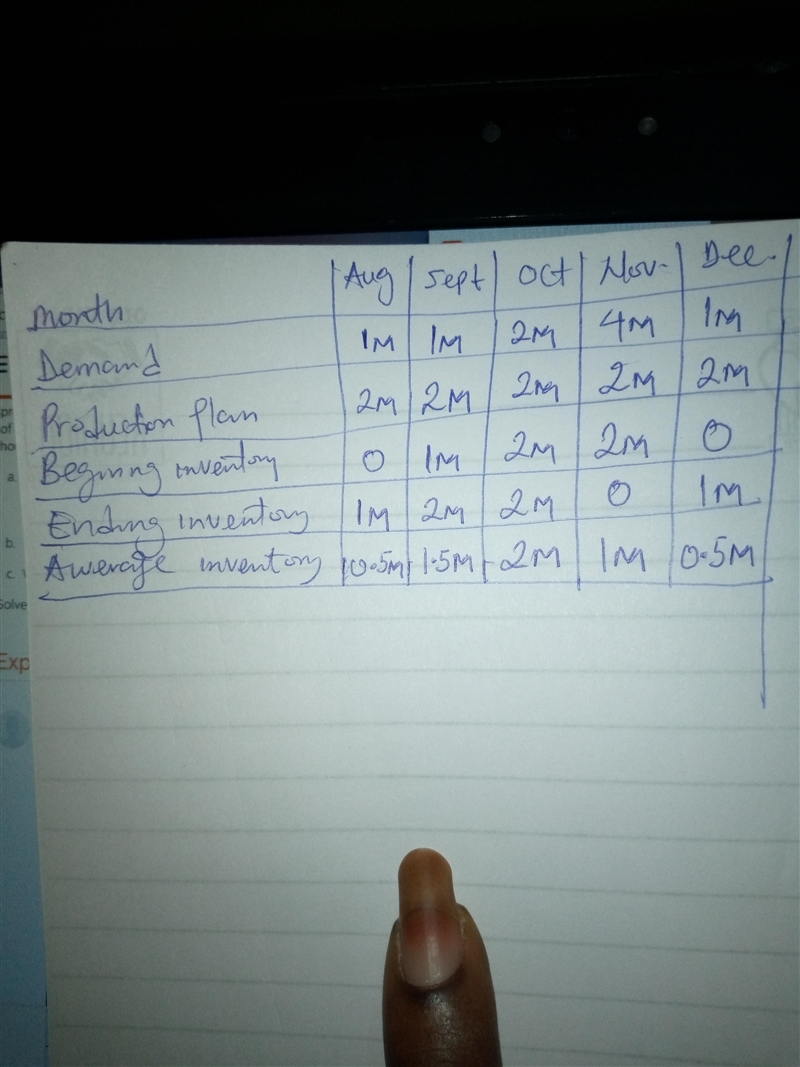 month Aug Sept Oct Nov. Dec.
Demand 1M 1M 2M 4M 1M
Production Plan 2M 2M 2M 2M 2M
Beginng inventory 0 1M 2M 2M 0
Ending inventory 1M 2M 2M 0 1M
Awerage inventory 0.5M 1.5M 2M 1M 0.5M
pr
of
ho
a.
b.
c.
Solve
Exp